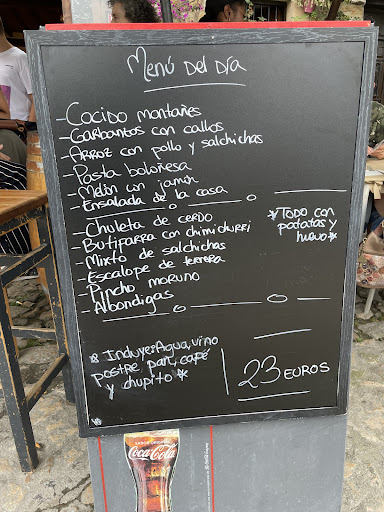 Menú Del Día
- Cocido montañes
- Garbanzos con callos
- Arroz con pollo y salchichas
- Pasta boloñesa
- Melón con jamón
- Ensalada de la casa
- Chuleta de cerdo
- Butifarra con chimichurri
- Mixto de salchichas
- Escalope de ternera
- Pincho moruno
- Albondigas
* Todo con
patatas y
huevo *
* Incluye Agua, vino
postre, pan, café
y chupito *
23 EUROS
Coca-Cola